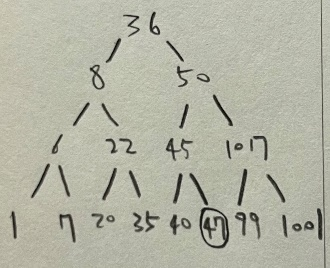 36
8 50
6 22 45 1017
1 7 20 35 40 47 99 1001